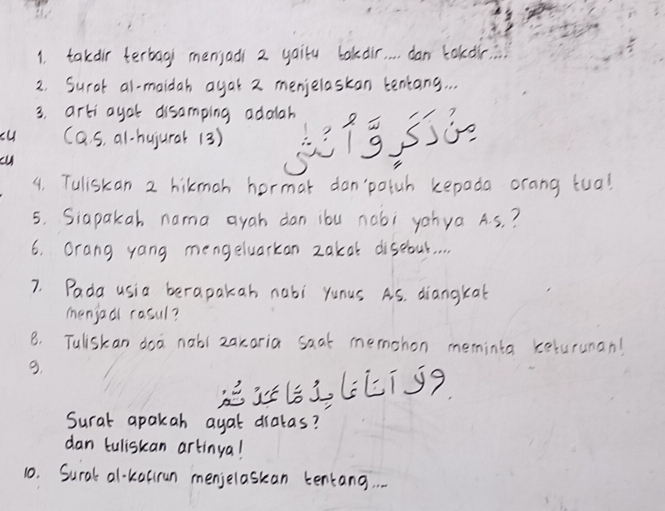 1. takdir terbagi menjadi 2 yaitu takdir.... dan takdir....
2. Surat al-maidah ayat 2 menjelaskan tentang...
3. arti ayat disamping adalah
(Q.S. al-hujurat 13) مِنْ ذَكَرٍ وَّأُنْثٰى
4. Tuliskan 2 hikmah hormat dan patuh kepada orang tua!
5. Siapakah nama ayah dan ibu nabi yahya A.S.?
6. Orang yang mengeluarkan zakat disebut....
7. Pada usia berapakah nabi Yunus AS. diangkat
menjadi rasul?
8. Tuliskan doa nabi zakaria saat memohon meminta keturunan!
9.
وَلَآ اَنَا۠ عَابِدٌ مَّا عَبَدْتُّمْ
Surat apakah ayat diatas?
dan tuliskan artinya!
10. Surat al-kafirun menjelaskan tentang...